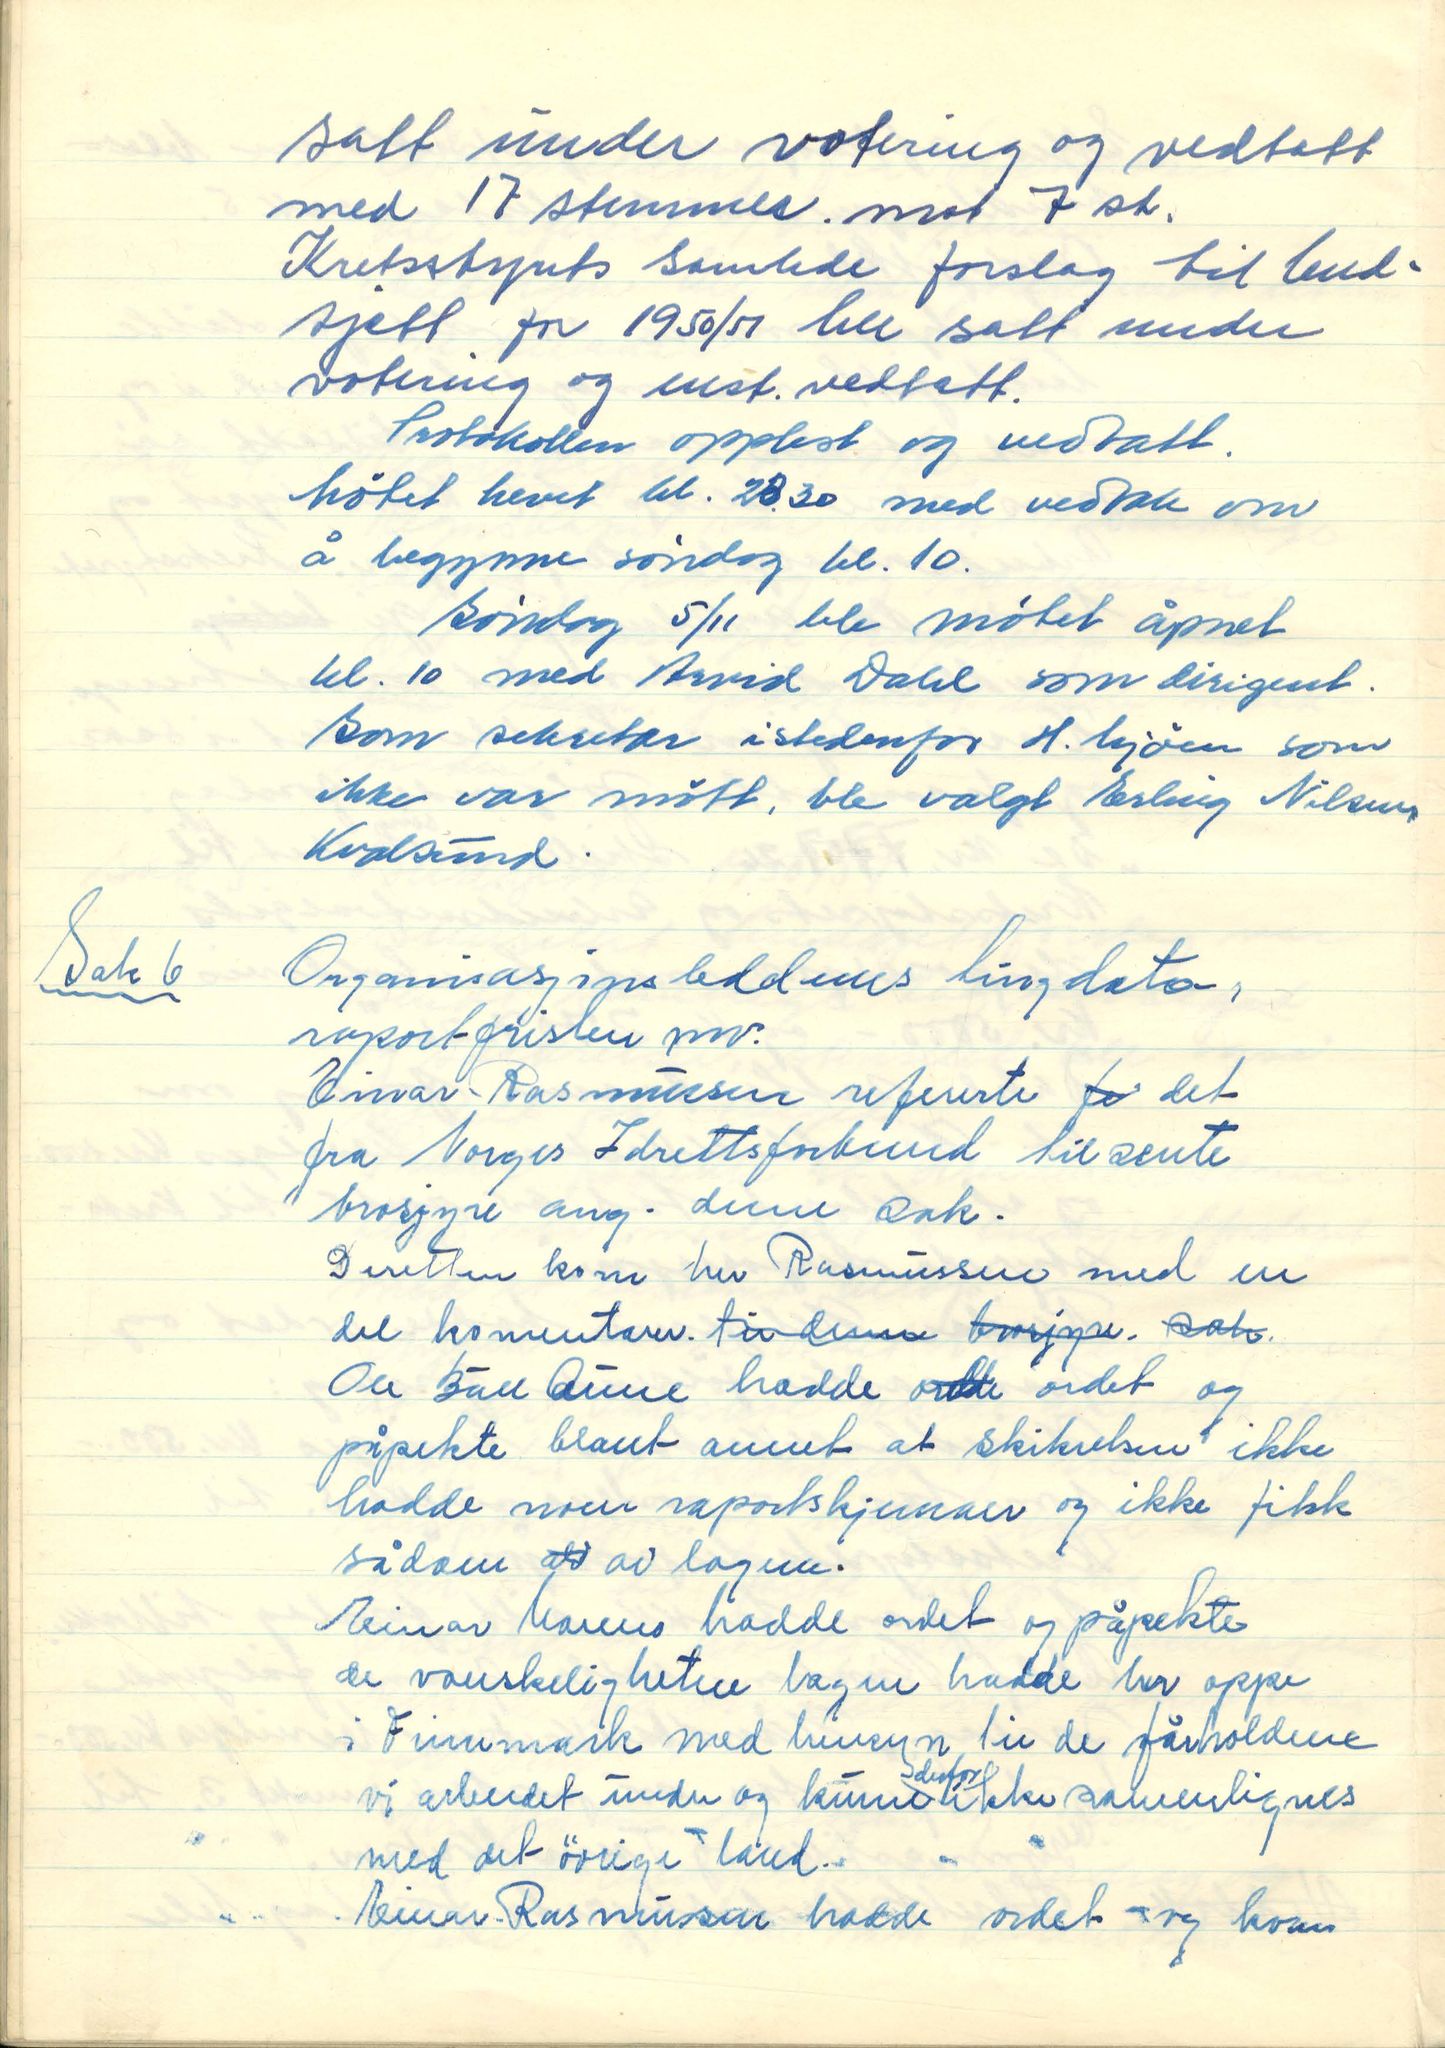 satt under votering og vedtatt
med 17 stemmer. mot 7 st.
Kretsstyrets samlede forslag til bud-
sjett for 1950/51 ble satt under
votering og enst. vedtatt.
Protokollen opplest og vedtatt.
Møtet hevet kl. 23.30 med vedtak om
å begynne søndag kl. 10.
Søndag 5/11 ble møtet åpnet
kl. 10 med Arvid Dahl som dirigent.
Som sekretær istedenfor H. som
ikke var møtt, ble valgt Erling Nilsen
Kvalsund.
Sak 6
Organisasjonsleddenes tingdato,
raportfristen mv.
Einar Rasmussen refererte det
fra Norges Idrettsforbund tilsente
brosjyre ang. denne sak.
Deretter kom her Rasmussen med en
del komentarer. til denne brosjyre. sak.
Ole Aune hadde ordet og
påpekte blant annet at skikretsen ikke
hadde noen raportskjemaer og ikke fikk
sådan av lagene.
Einar hadde ordet og påpekte
de vanskelighetene lagene hadde her oppe
i Finnmark med hensyn til de fårholdene
vi arbeidet under og kunne derfor ikke samenlignes
med det övrige land.
Einar Rasmussen hadde ordet og kom